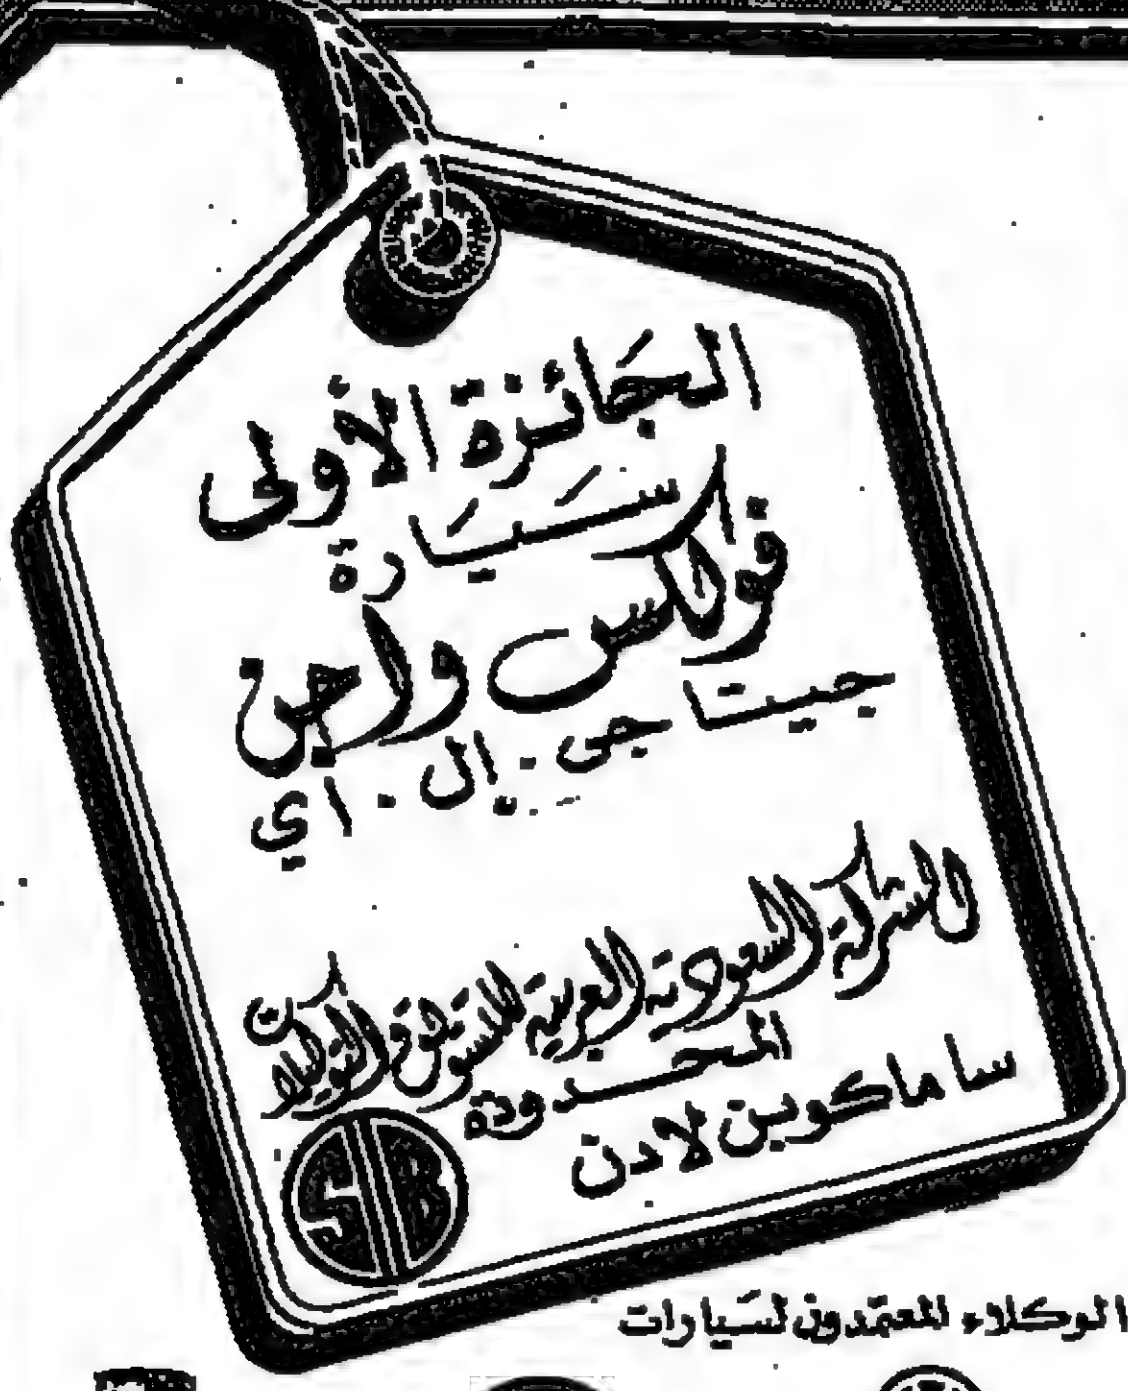 الجائزة الأولى
سيارة
فولكس واجن
جيتا جي . إل . اي
الشركة السعودية العربية للتسويق والتوكيلات
المحدودة
ساماكو بن لادن
SB
الوكلاء المعتمدون لسيارات